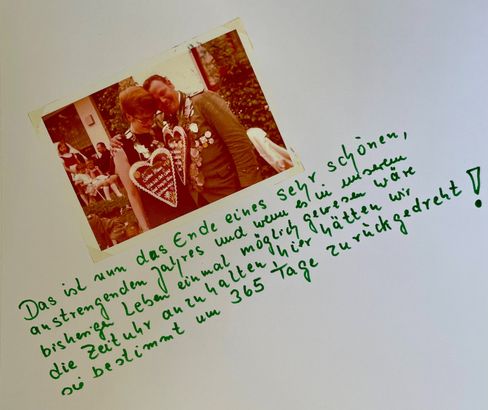 Das ist nun das Ende eines sehr schönen,
anstrengenden Jahres und wenn es in unserem
bisherigen Leben einmal möglich gewesen wäre
die Zeituhr anzuhalten, hier hätten wir
sie bestimmt um 365 Tage zurückgedreht!